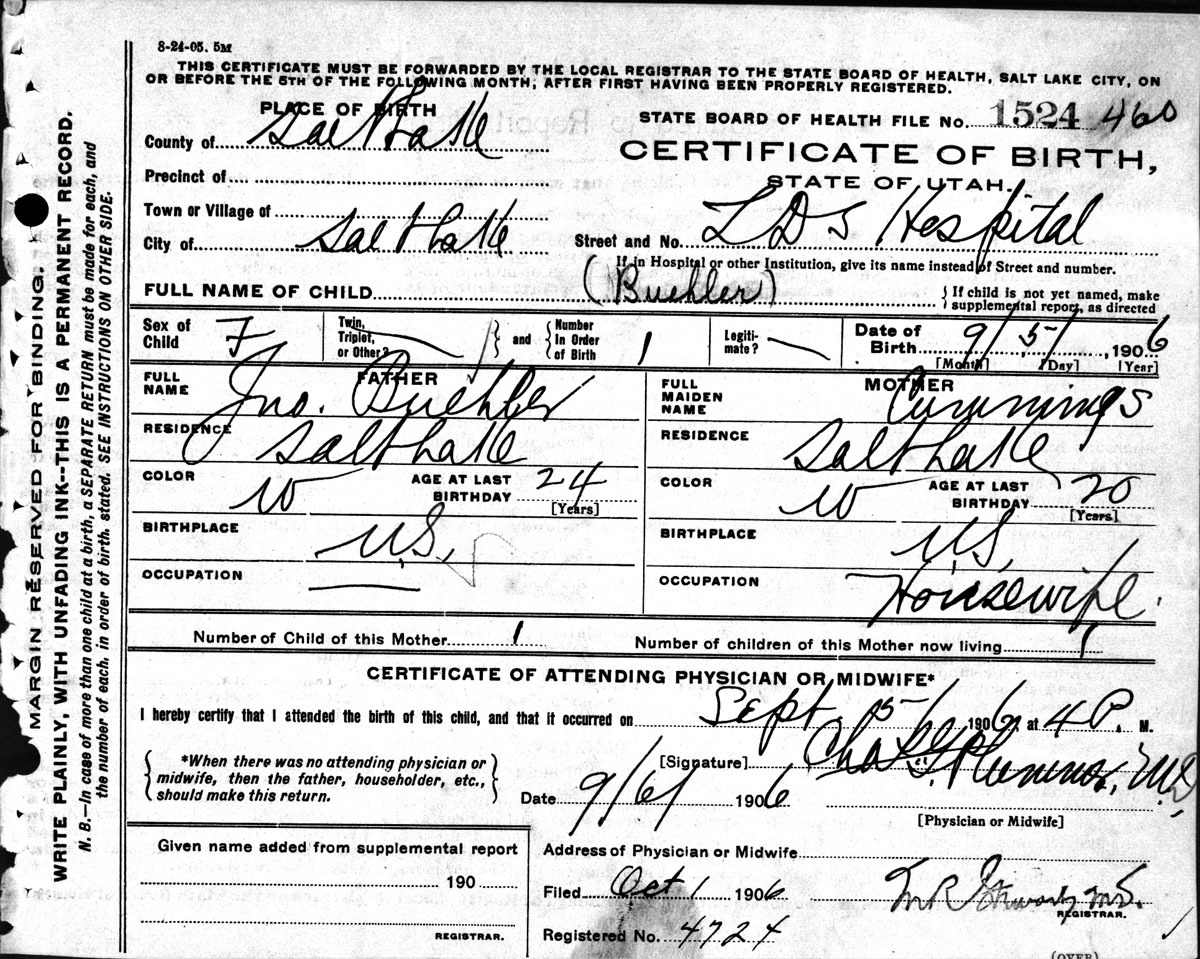 8-24-05. 5M
THIS CERTIFICATE MUST BE FORWARDED BY THE LOCAL REGISTRAR TO THE STATE BOARD OF HEALTH, SALT LAKE CITY, ON
OR BEFORE THE 5TH OF THE FOLLOWING MONTH, AFTER FIRST HAVING BEEN PROPERLY REGISTERED.
PLACE OF BIRTH
STATE BOARD OF HEALTH FILE No. 1524 460
County of Salt Lake
CERTIFICATE OF BIRTH,
STATE OF UTAH.
Precinct of
Town or Village of
City of Salt Lake
Street and No. L D S Hospital
If in Hospital or other Institution, give its name instead of Street and number.
FULL NAME OF CHILD (Buehler)
If child is not yet named, make
supplemental report, as directed
Sex of Child F
Twin, Triplet, or Other?
and
Number In Order of Birth 1
Legiti-mate?
Date of Birth 9/5/, 1906
[Month] [Day] [Year]
FATHER
FULL NAME Jno. Buehler
RESIDENCE Salt Lake
COLOR W
AGE AT LAST BIRTHDAY 24
[Years]
BIRTHPLACE U.S.
OCCUPATION
MOTHER
FULL MAIDEN NAME Cummings
RESIDENCE Salt Lake
COLOR W
AGE AT LAST BIRTHDAY 20
[Years]
BIRTHPLACE U.S.
OCCUPATION Housewife.
Number of Child of this Mother 1
Number of children of this Mother now living 1
CERTIFICATE OF ATTENDING PHYSICIAN OR MIDWIFE*
I hereby certify that I attended the birth of this child, and that it occurred on Sept. 5, 1906, at 4 P. M.
*When there was no attending physician or
midwife, then the father, householder, etc.,
should make this return.
[Signature] Chas. G. Plummer, M.D.
Date 9/6/ 1906
[Physician or Midwife]
Given name added from supplemental report
190
REGISTRAR.
Address of Physician or Midwife
Filed Oct 1 1906
M.D.
REGISTRAR.
Registered No. 4724
(OVER)
MARGIN RESERVED FOR BINDING.
WRITE PLAINLY, WITH UNFADING INK--THIS IS A PERMANENT RECORD.
N. B.—In case of more than one child at a birth, a SEPARATE RETURN must be made for each, and
the number of each, in order of birth, stated. SEE INSTRUCTIONS ON OTHER SIDE.